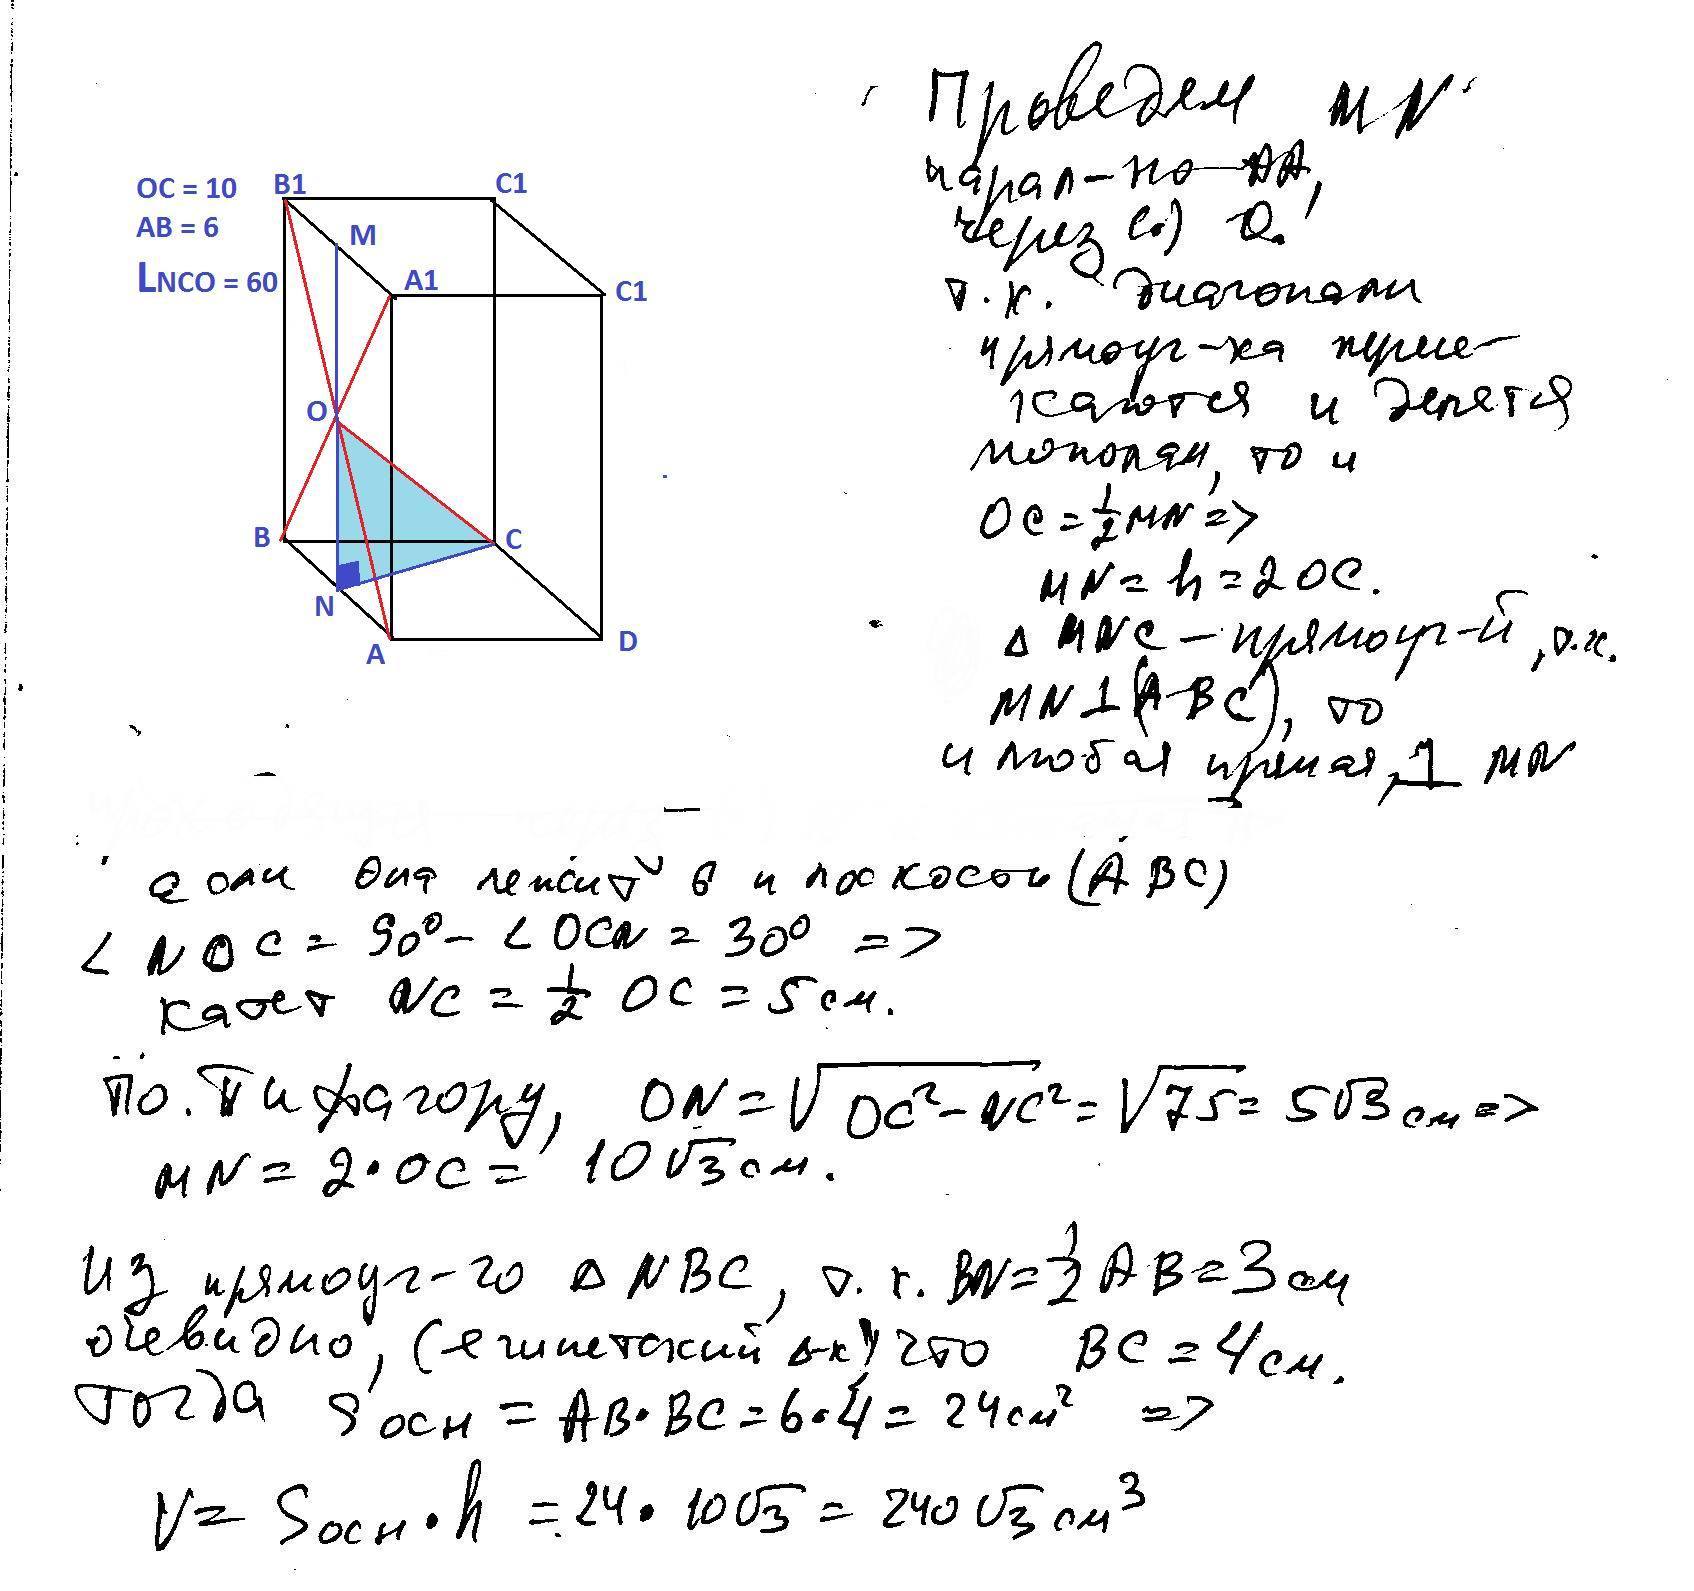 OC = 10
AB = 6
LNCO = 60
B1
C1
M
A1
C1
O
B
C
N
A
D
Проведем MN
парал-но AA,
через (.) O.
т.к. диагонали
прямоуг-ка пересе-
каются и делятся
пополам, то и
OC = 1/2 MN =>
MN = h = 2 OC.
Δ MNC – прямоуг-й, т.к.
MN ⊥ (ABC), то
и любая прямая, ⊥ MN
если она лежит в плоскости (ABC)
∠ NOC = 90° - ∠ OCN = 30° =>
катет NC = 1/2 OC = 5 см.
По. Пифагору, ON = √(OC² - NC²) = √75 = 5√3 см =>
MN = 2 • OC = 10√3 см.
Из прямоуг-го Δ NBC, т.к. BN = 1/2 AB = 3 см
очевидно, (египетский Δ-к) что BC = 4 см.
Тогда Sосн = AB • BC = 6 • 4 = 24 см² =>
V = Sосн • h = 24 • 10√3 = 240√3 см³